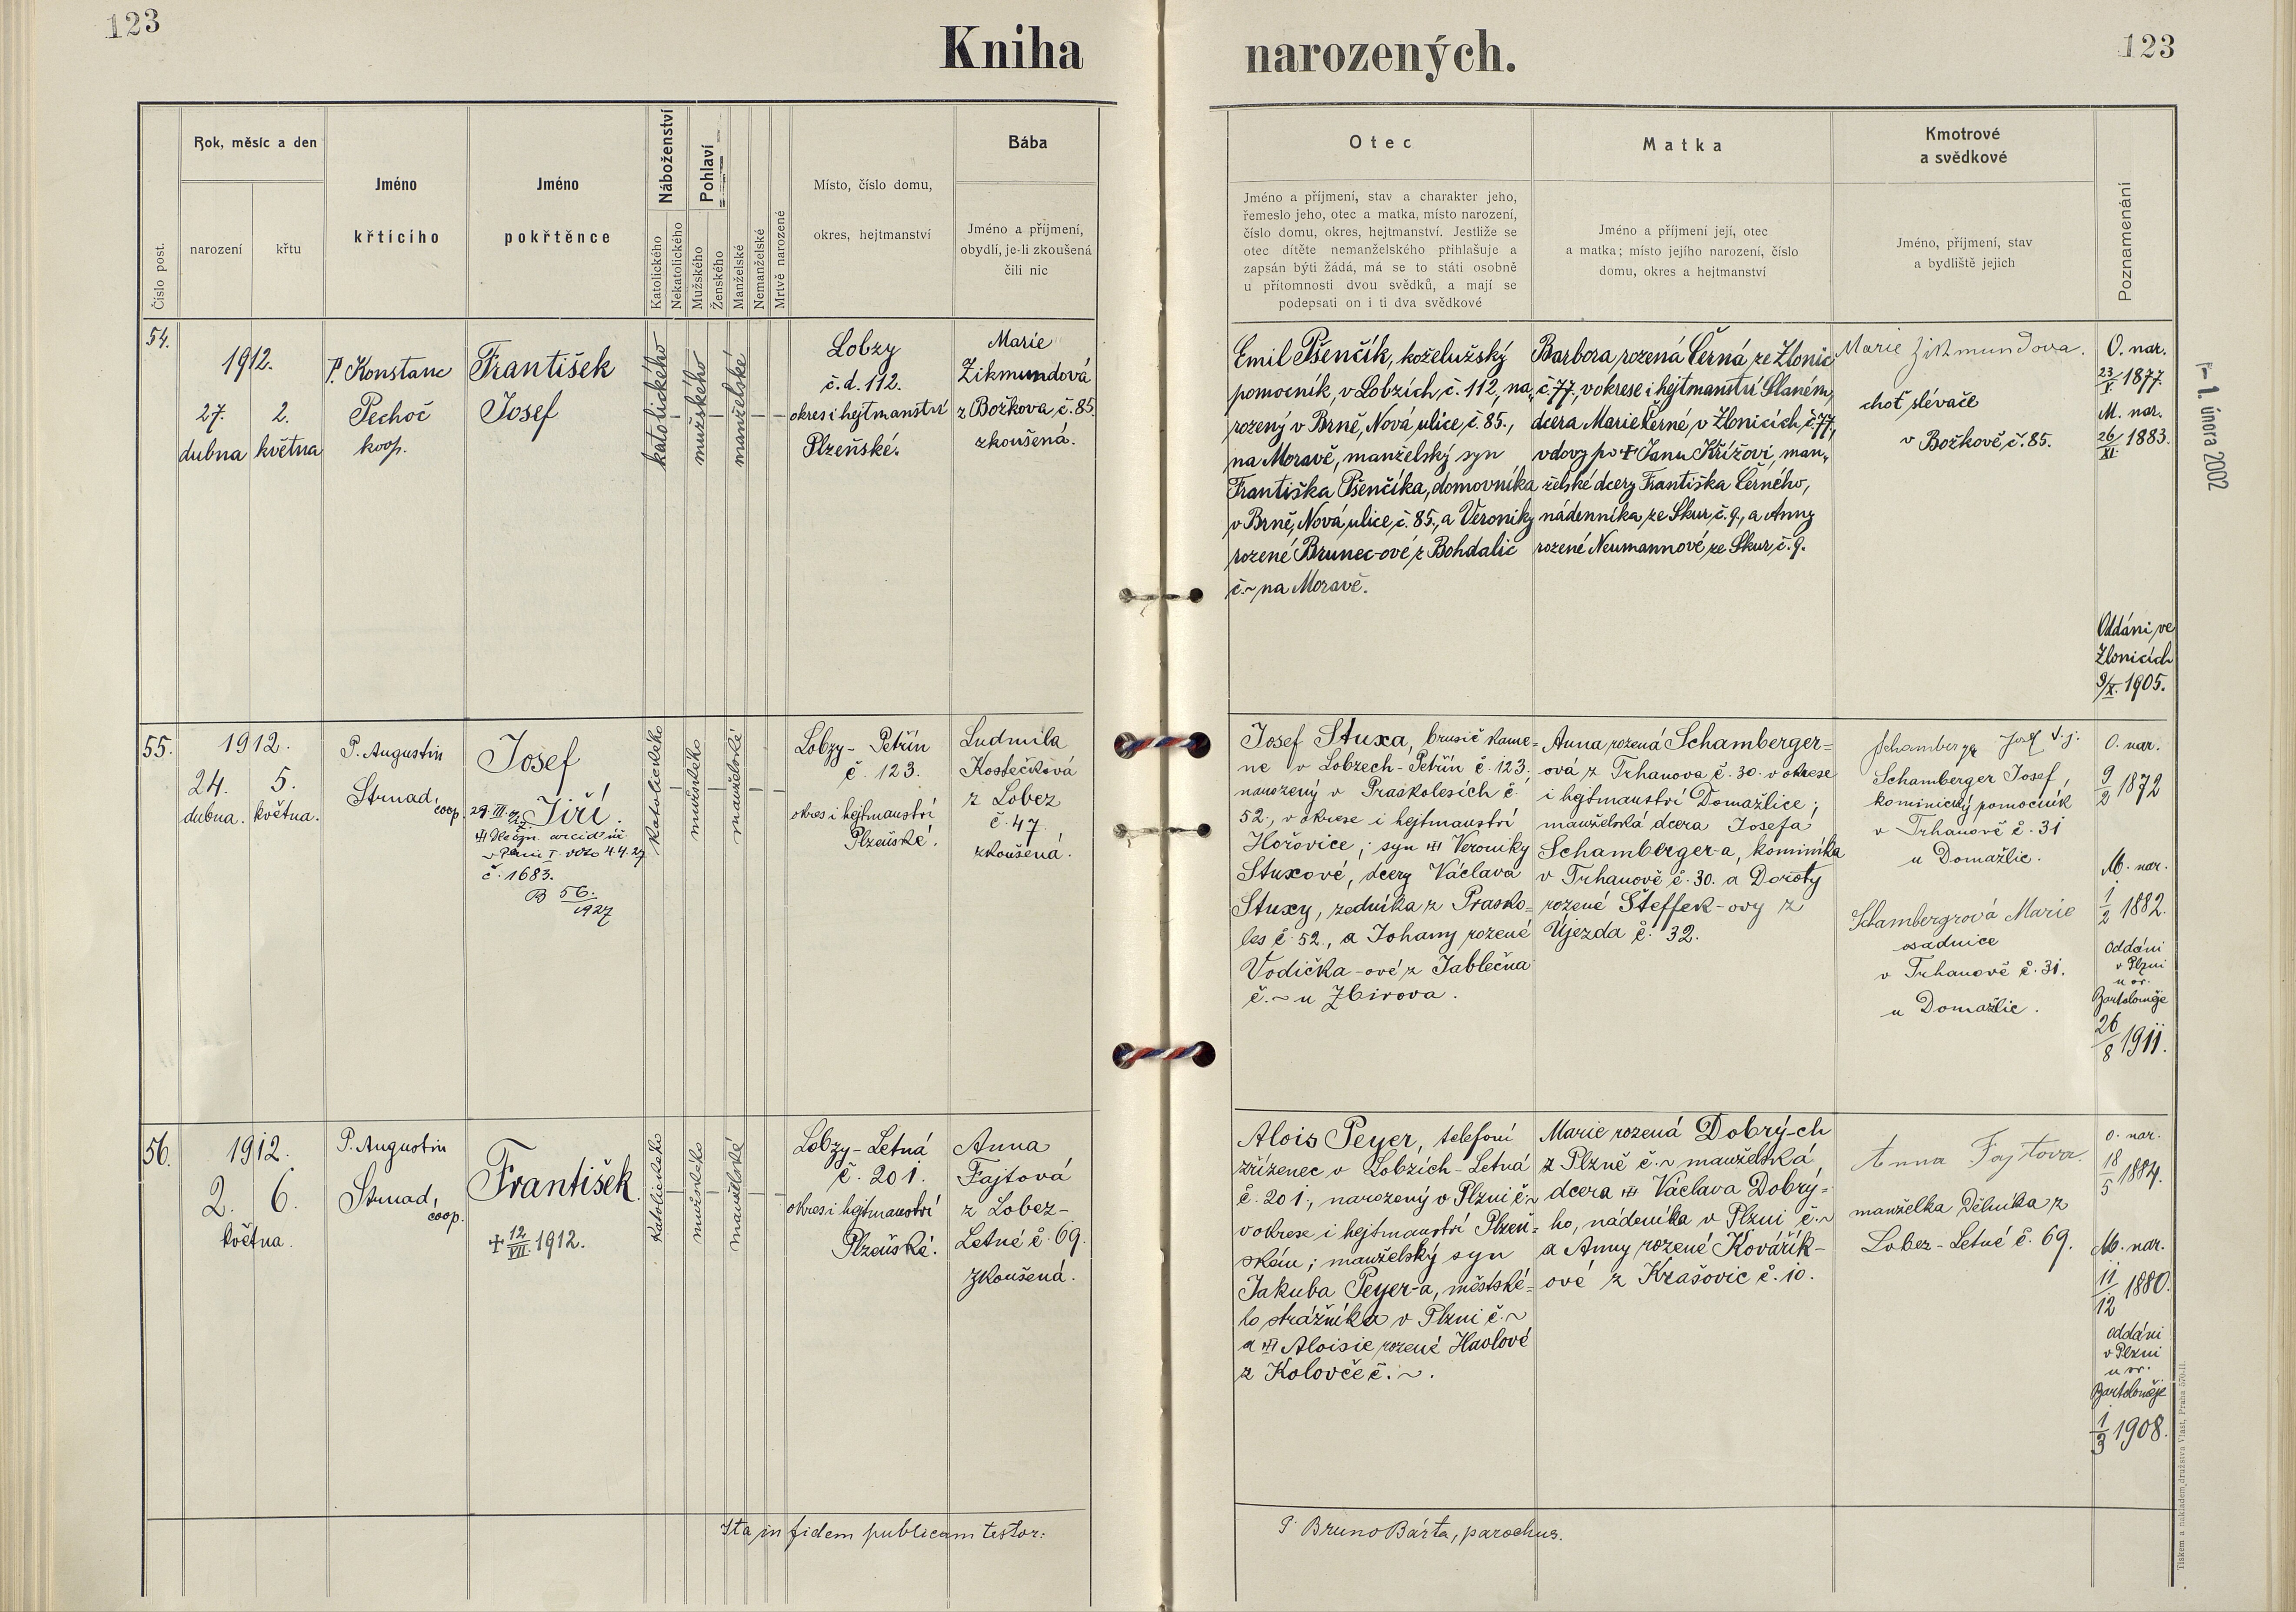 123
Kniha
narozených.
123
Číslo post.
Rok, měsíc a den
narození
křtu
Jméno
křtícího
Jméno
pokřtěnce
Náboženství
Katolického
Nekatolického
Pohlaví
Mužského
Ženského
Manželské
Nemanželské
Mrtvě narozené
Místo, číslo domu,
okres, hejtmanství
Bába
Jméno a příjmení,
obydlí, je-li zkoušená
čili nic
Otec
Jméno a příjmení, stav a charakter jeho,
řemeslo jeho, otec a matka, místo narození,
číslo domu, okres, hejtmanství. Jestliže se
otec dítěte nemanželského přihlašuje a
zapsán býti žádá, má se to státi osobně
u přítomnosti dvou svědků, a mají se
podepsati on i ti dva svědkové
Matka
Jméno a příjmení její, otec
a matka; místo jejího narození, číslo
domu, okres a hejtmanství
Kmotrové
a svědkové
Jméno, příjmení, stav
a bydliště jejich
Poznamenání
54.
1912.
27. 2.
dubna května
P. Konstanc
Pechoč
koop.
František
Josef
katolického
mužského
manželské
Lobzy
č.d. 112.
okres i hejtmanství
Plzeňské.
Marie
Zikmundová
z Božkova, č. 85.
zkoušená.
Emil Pšenčík, koželužský
pomocník, v Lobzích, č. 112, na„
rozený v Brně, Nová ulice, č. 85.,
na Moravě, manželský syn
Františka Pšenčíka, domovníka
v Brně, Nová ulice, č. 85., a Veroniky
rozené Brunec-ové z Bohdalic
č. ~ na Moravě.
Barbora, rozená Černá, ze Zlonic
č. 77., v okrese i hejtmanství Slaném,
dcera Marie Černé, v Zlonicích, č. 77.,
vdovy po † Janu Křížovi, man„
želské dcery Františka Černého,
nádenníka, ze Skur, č. 9., a Anny
rozené Neumannové, ze Skur, č. 9.
Marie Zikmundova.
choť slévače
v Božkově, č. 85.
O. nar.
23/X. 1877.
M. nar.
26/XI. 1883.
Oddáni ve
Zlonicích
9/X. 1905.
- 1. února 2002
55.
1912.
24. 5.
dubna. května.
P. Augustin
Strnad,
coop.
Josef
Jiří.
č. 1683.
B 56./1927
katolického
mužského
manželské
Lobzy - Petřín
č. 123.
okres i hejtmanství
Plzeňské.
Ludmila
Kostečková
z Lobez
č. 47.
zkoušená.
Josef Stuxa, brusič kame=
ne v Lobzech - Petřín č. 123,
narozený v Praskolesích č.
52., v okrese i hejtmanství
Hořovice; syn Veroniky
Stuxové, dcery Václava
Stuxy, zedníka z Prasko=
les č. 52., a Johany rozené
Vodička-ové z Jablečna
č. ~ u Zbirova.
Anna rozená Schamberger=
ová z Trhanova č. 30. v okrese
i hejtmanství Domažlice;
manželská dcera Josefa
Schamberger-a, kominíka
v Trhanově č. 30. a Doroty
rozené Šteffek-ovy z
Újezda č. 32.
Schamberger Josef,
kominický pomocník
v Trhanově č. 31
u Domažlic.
Schambergrová Marie
osadnice
v Trhanově č. 31.
u Domažlic.
O. nar.
9/2 1872
M. nar.
1/2 1882.
Oddáni
v Plzni
u sv.
Bartoloměje
26/8 1911.
56.
1912.
2. 6.
května.
P. Augustin
Strnad,
coop.
František.
† 12/VII. 1912.
katolického
mužského
manželské
Lobzy - Letná
č. 201.
okres i hejtmanství
Plzeňské.
Anna
Fajtová
z Lobez -
Letné č. 69.
zkoušená.
Alois Peyer, telefoní
zřízenec v Lobzích - Letná
č. 201., narozený v Plzni č. ~
v okrese i hejtmanství Plzeň=
ském; manželský syn
Jakuba Peyer-a, městské=
ho strážníka v Plzni č. ~
a Aloisie rozené Havlové
z Kolovče č. ~.
Marie rozená Dobrý-ch
z Plzně č. ~ manželská
dcera Václava Dobrý=
ho, nádeníka v Plzni č. ~
a Anny rozené Kovářík-
ové z Krašovic č. 10.
Anna Fajtova.
manželka dělníka z
Lobez - Letné č. 69.
O. nar.
18/5 1884.
M. nar.
11/12 1880.
Oddáni
v Plzni
u sv.
Bartoloměje
1/3 1908.
Ita in fidem publicam testor:
P. Bruno Bárta, parochus.
Tiskem a nákladem družstva Vlast, Praha 570-II.